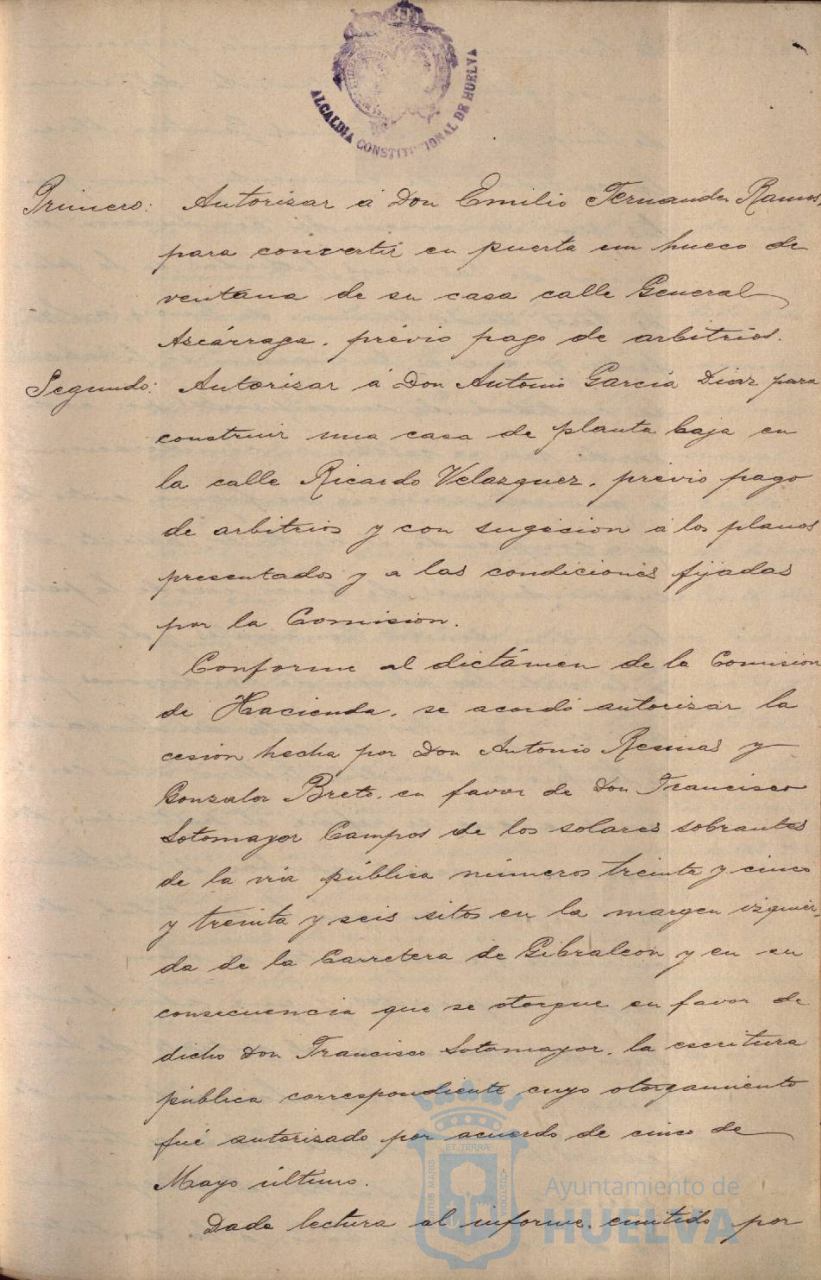 ALCALDIA CONSTITUCIONAL DE HUELVA
Primero: Autorizar á Don Emilio Fernandez Ramos,
para convertir en puerta un hueco de
ventana de su casa calle General
Azcárraga, prévio pago de arbitrios.
Segundo: Autorizar á Don Antonio García Diaz para
construir una casa de planta baja en
la calle Ricardo Velazquez, prévio pago
de arbitrios y con sugesion a los planos
presentados y a las condiciones fijadas
por la Comision.
Conforme al dictámen de la Comision
de Hacienda, se acordó autorizar la
cesion hecha por Don Antonio y
Gonzalo en favor de Don Francisco
Sotomayor Campos de los solares sobrantes
de la via pública números treinta y cinco
y treinta y seis sitos en la margen izquier-
da de la Carretera de Gibraleon y en su
consecuencia que se otorgue en favor de
dicho Don Francisco Sotomayor, la escritura
pública correspondiente cuyo otorgamiento
fué autorizado por acuerdo de cinco de
Mayo último.
Dada lectura al informe emitido por
Ayuntamiento de
HUELVA